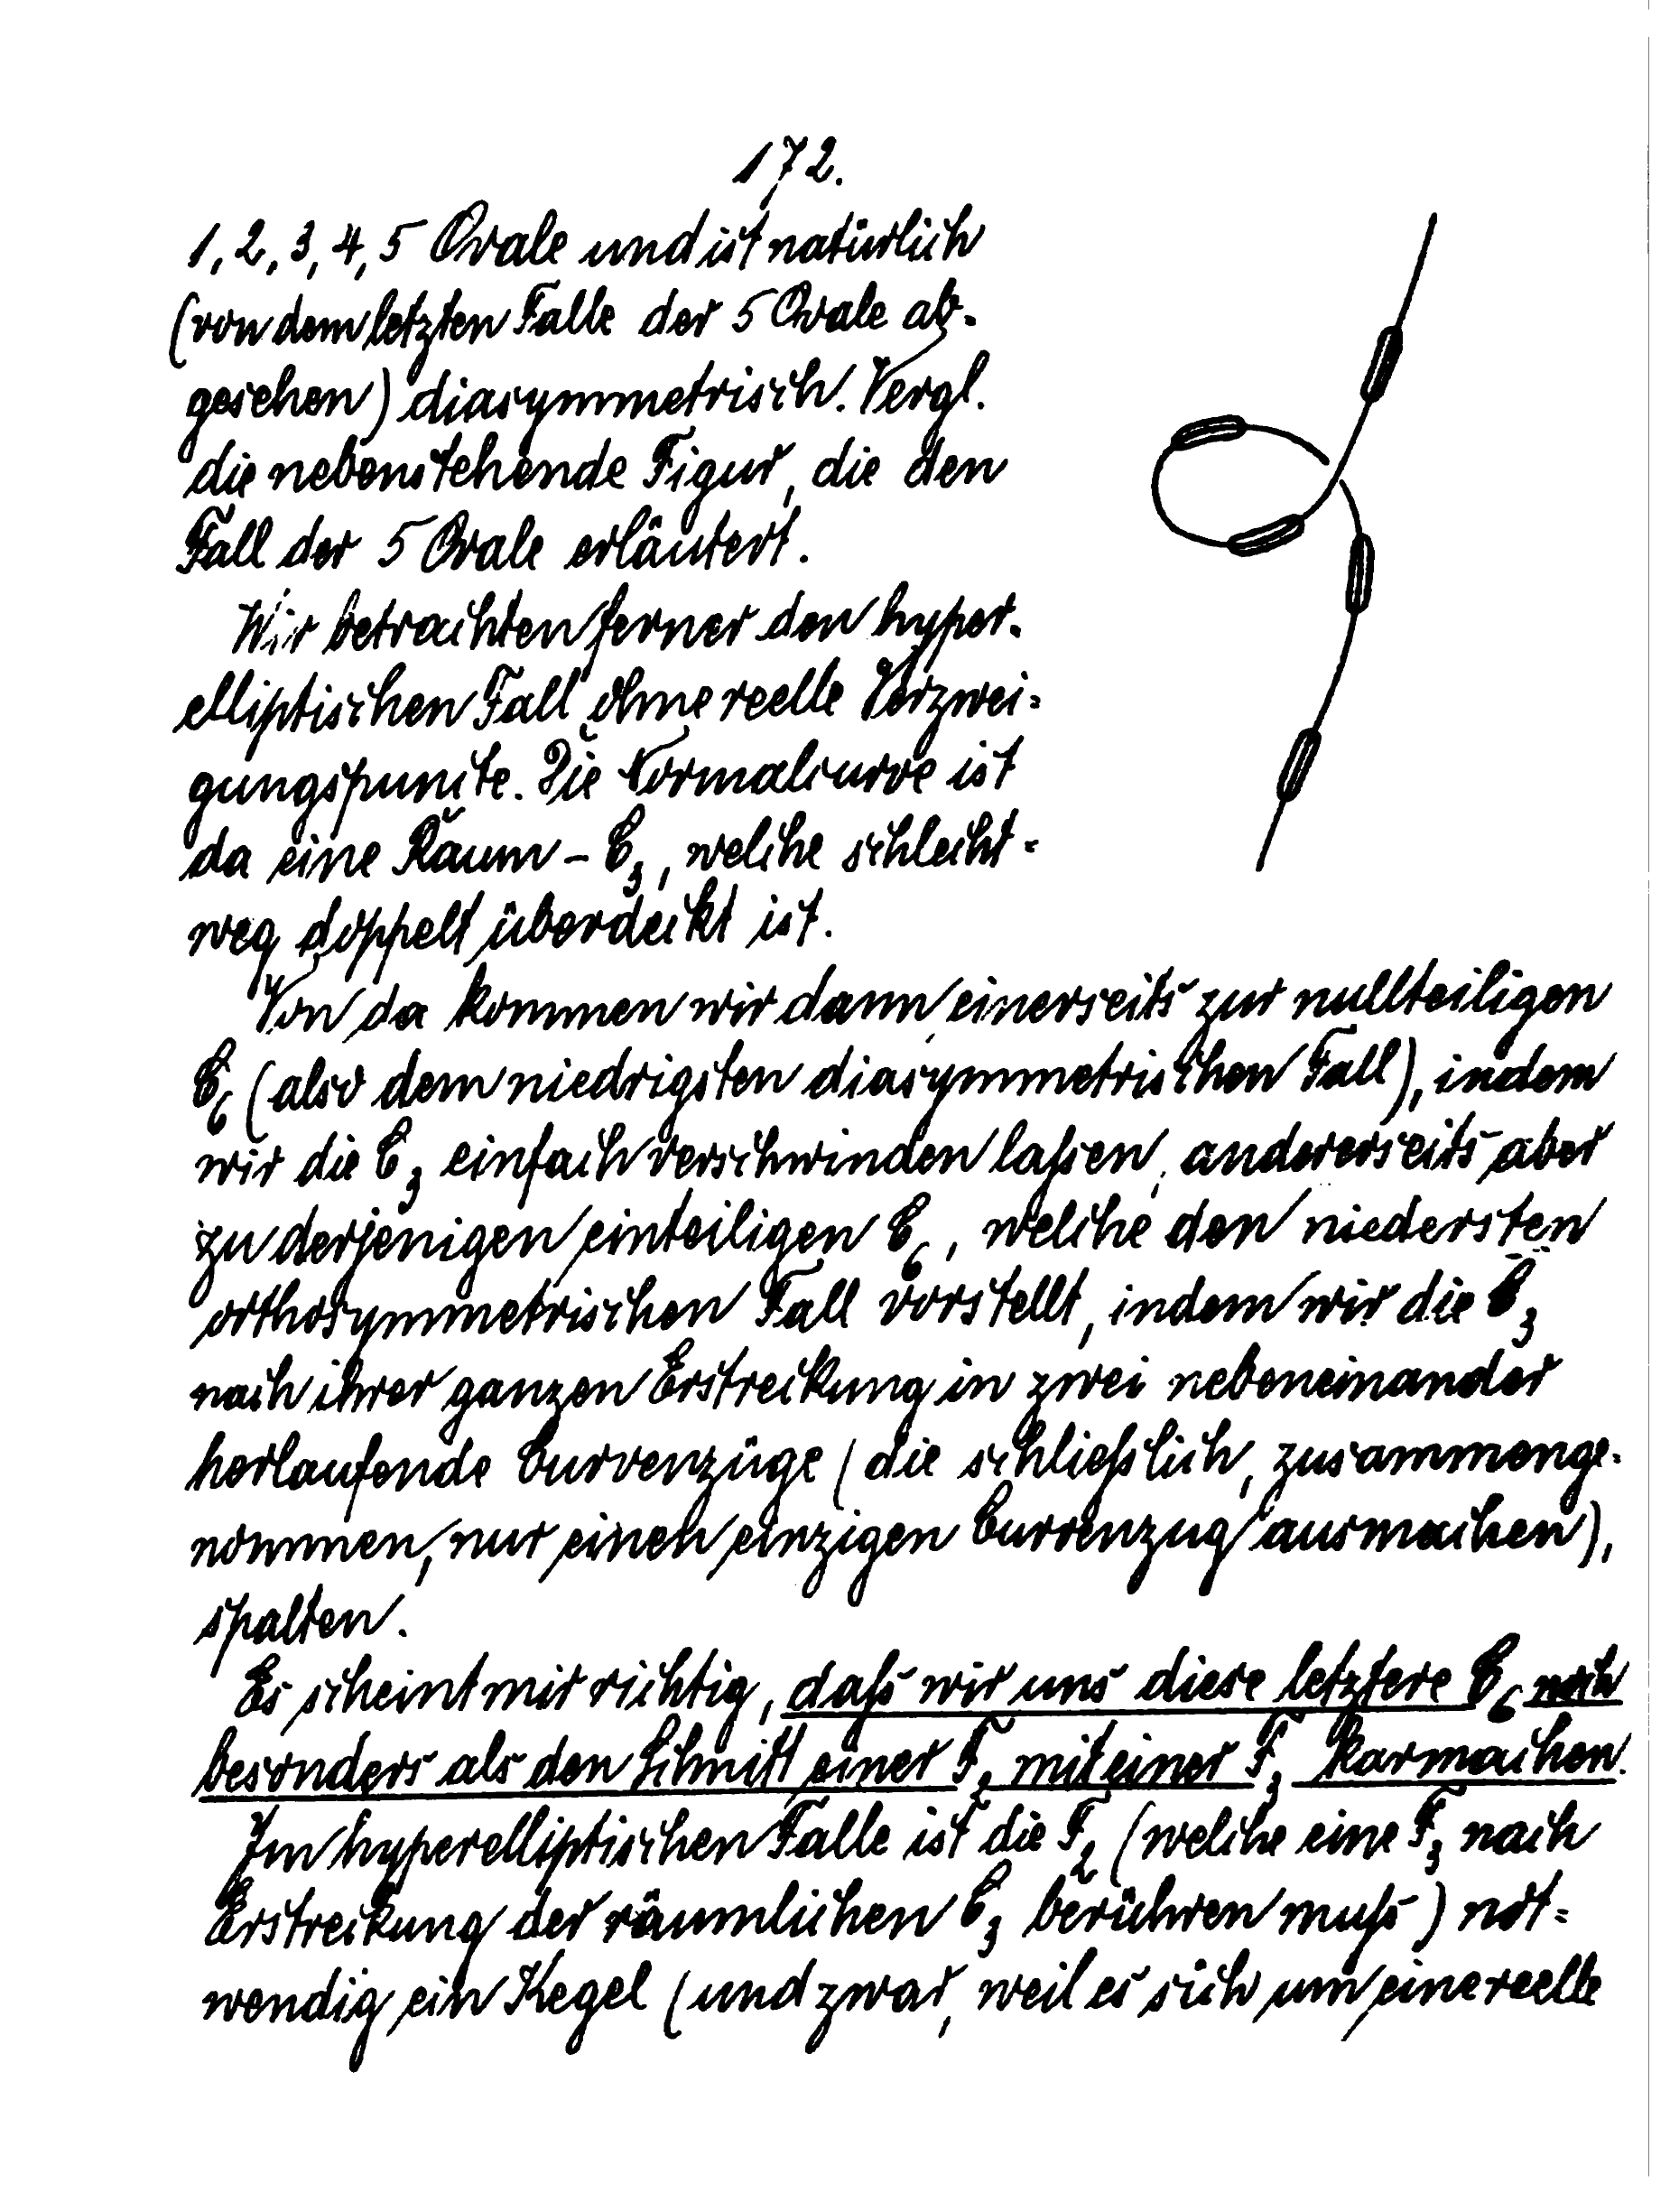 172.
1, 2, 3, 4, 5 Ovale und ist natürlich
(von dem letzten Falle der 5 Ovale ab-
gesehen) diasymmetrisch. Vergl.
die nebenstehende Figur, die den
Fall der 5 Ovale erläutert.
Wir betrachten ferner den hyper-
elliptischen Fall ohne reelle Verzwei-
gungspuncte. Die Normalcurve ist
da eine Raum - C₃, welche schlecht-
weg doppelt überdeckt ist.
Von da kommen wir dann einerseits zur nullteiligen
C₆ (also dem niedrigsten diasymmetrischen Fall), indem
wir die C₃ einfach verschwinden laßen, andererseits aber
zu derjenigen einteiligen C₆, welche den niedersten
orthosymmetrischen Fall vorstellt, indem wir die C₃
nach ihrer ganzen Erstreckung in zwei nebeneinander
herlaufende Curvenzüge (die schließlich, zusammenge-
nommen, nur einen einzigen Curvenzug ausmachen),
spalten.
Es scheint mir richtig, daß wir uns diese letztere C₆ noch
besonders als den Schnitt einer F₂ mit einer F₃ klarmachen.
Im hyperelliptischen Falle ist die F₂ (welche eine F₃ nach
Erstreckung der räumlichen C₃ berühren muß) not-
wendig ein Kegel (und zwar, weil es sich um eine reelle